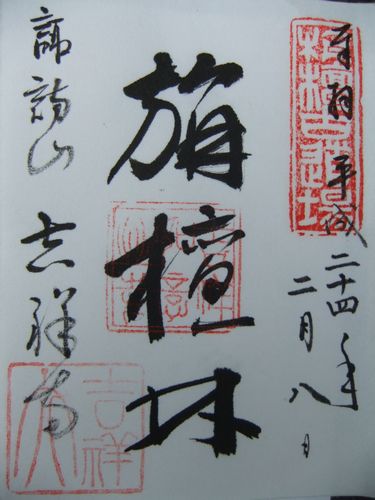 奉拝 平成二十四年
二月八日
旃檀林
諏訪山 吉祥寺
吉祥
寺